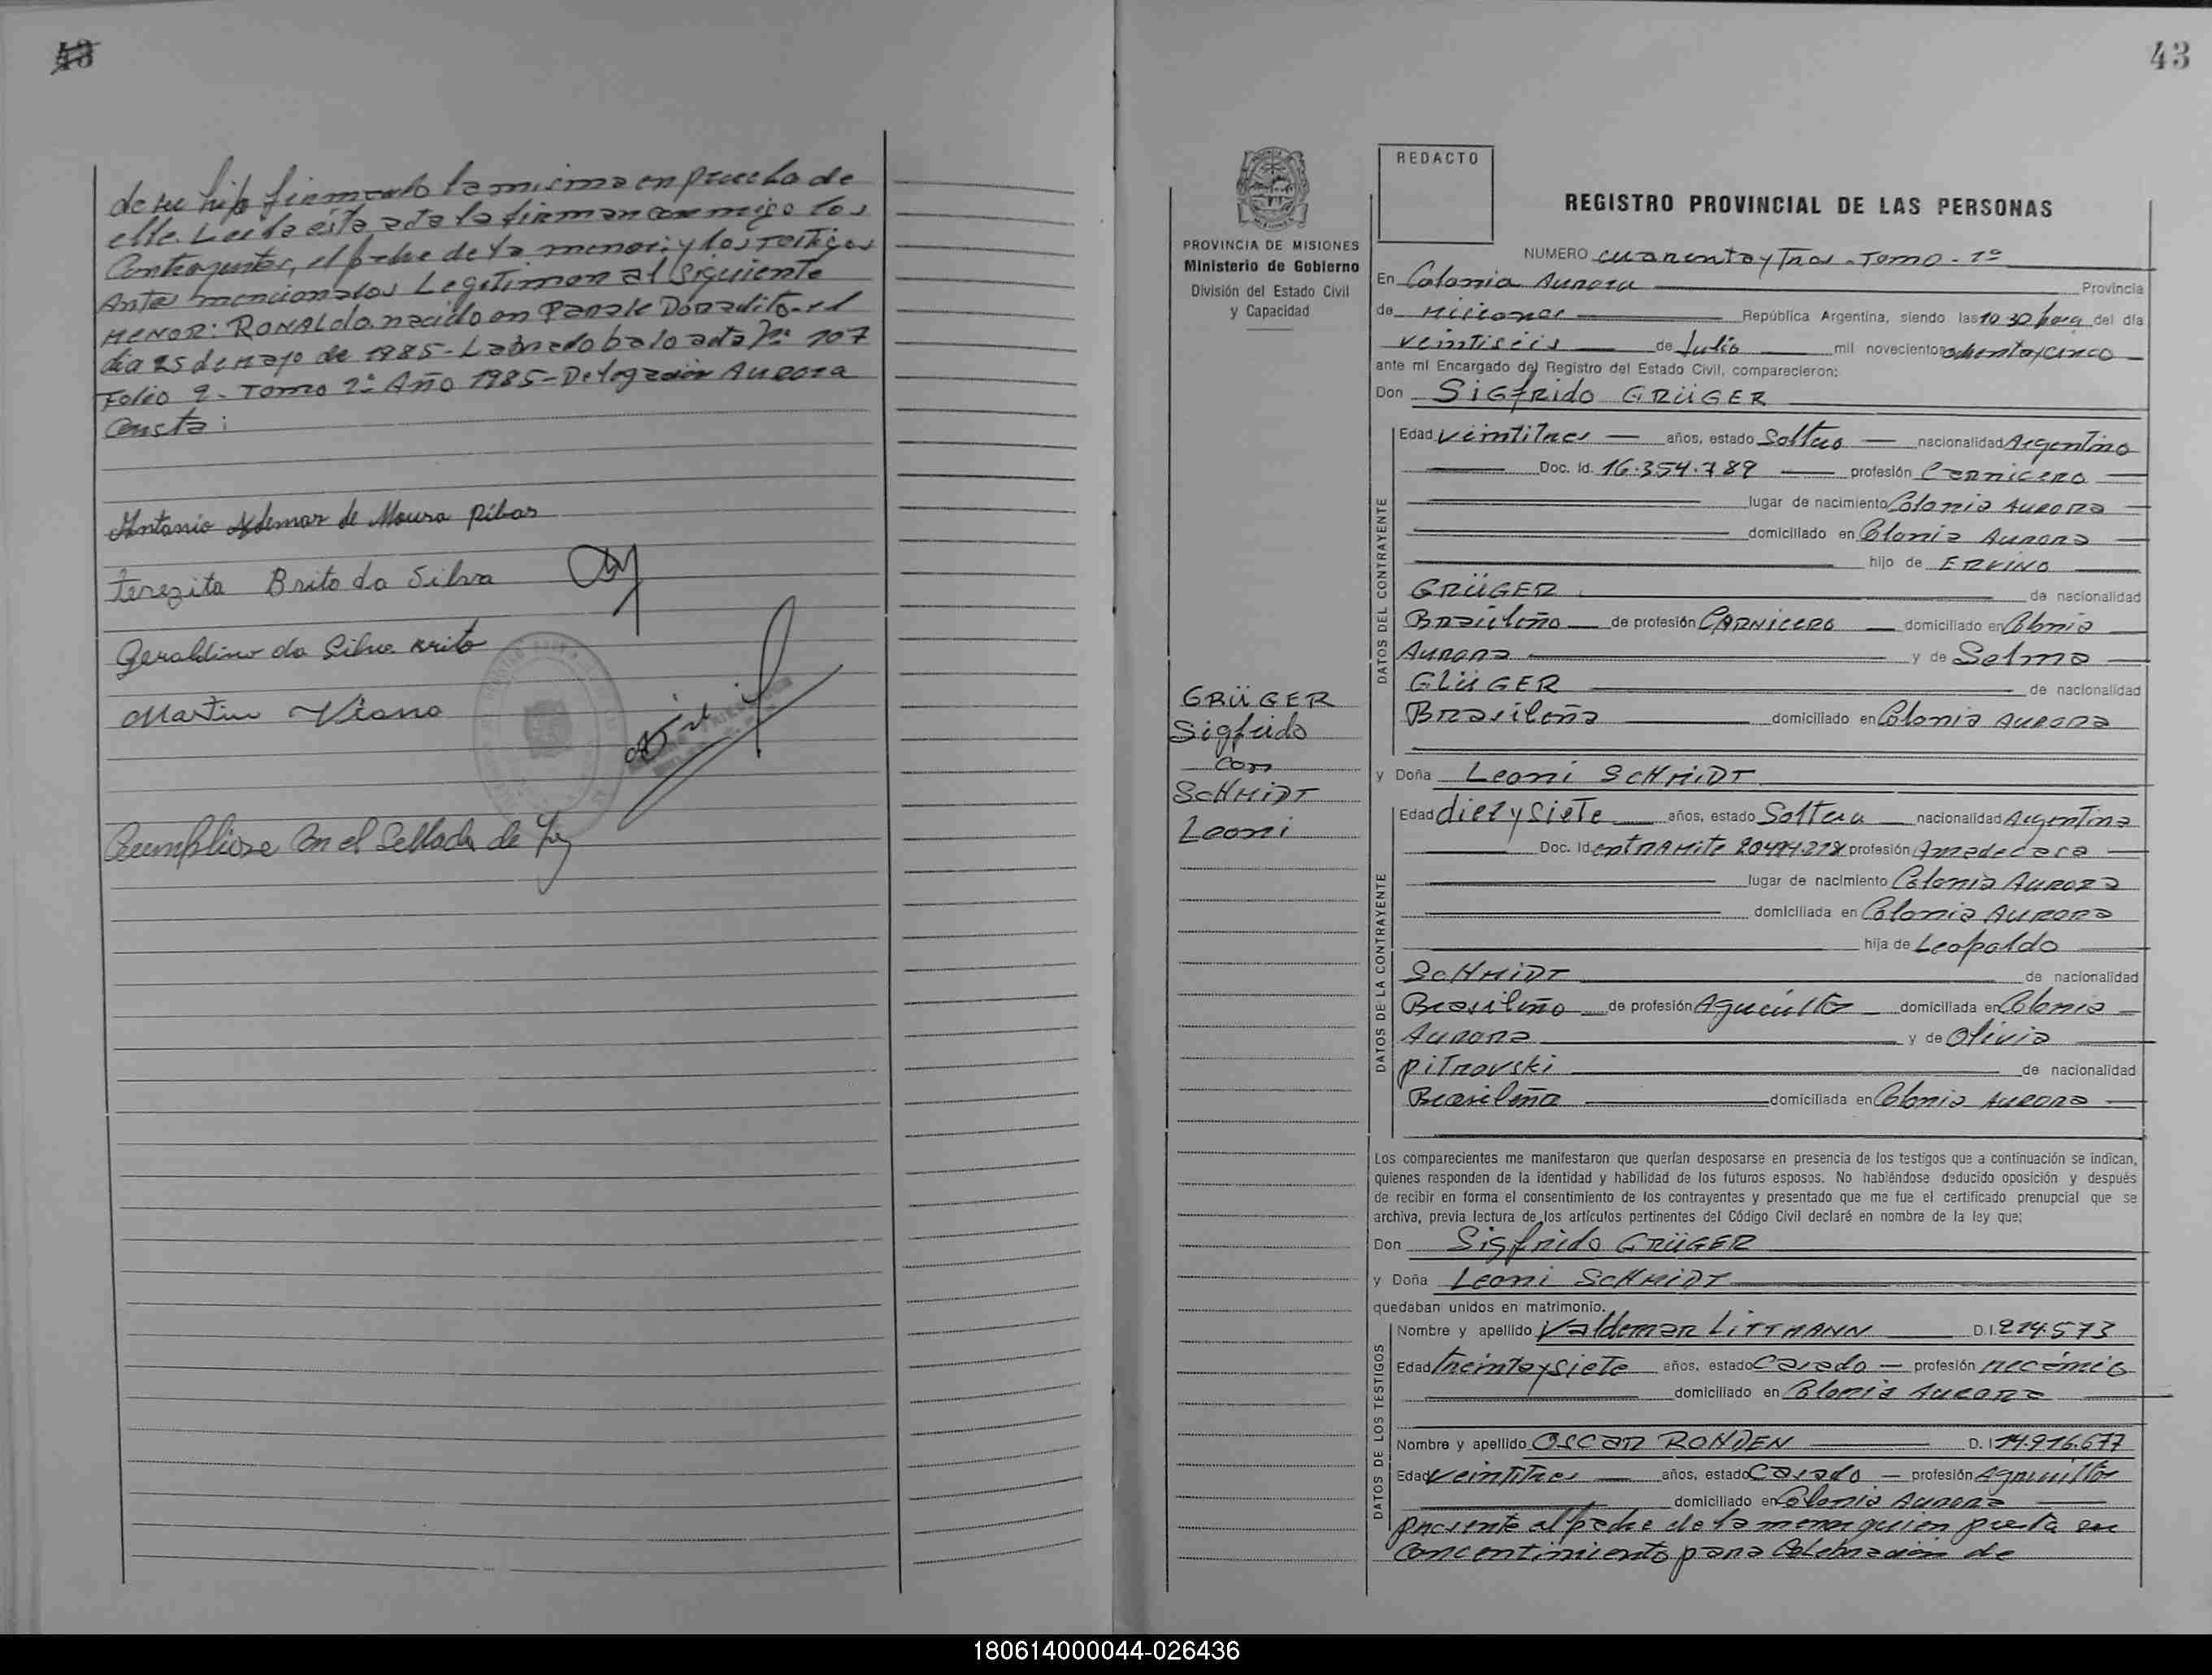 43
de su hijo firmando la misma en prueba de
ello. Leida ésta acta la firman conmigo los
Contrayentes, el padre de la menor; y los Testigos
Antes mencionados Legitiman al Siguiente
MENOR: RONALdo. nacido en Paraje Doradito. el
dia 25 de mayo de 1985 - Labrado bajo acta Nº 107
Folio 9 - Tomo 2º Año 1985 - Delegación Aurora
Consta:
Antonio Ademar de Moura Ribas
Terezita Brito da Silva
Geraldino da Silva Brito
Martin Viana
Cumpliose Con el Sellado de Ley
43
REDACTO
REGISTRO PROVINCIAL DE LAS PERSONAS
PROVINCIA DE MISIONES
Ministerio de Gobierno
División del Estado Civil
y Capacidad
GRÜGER
Sigfrido
Con
SCHMIDT
Leoni
NUMERO cuarenta y Tres - Tomo - 1º
En Colonia Aurora Provincia
de Misiones República Argentina, siendo las 10 30 hora del día
veintiséis de Julio mil novecientos ochenta y cinco
ante mí Encargado del Registro del Estado Civil, comparecieron:
Don Sigfrido GRÜGER
DATOS DEL CONTRAYENTE
Edad veintitres años, estado Soltero nacionalidad Argentino
Doc. Id. 16.354.789 profesión Carnicero
lugar de nacimiento Colonia Aurora
domiciliado en Colonia Aurora
hijo de ERVINO
GRÜGER de nacionalidad
Brasileño de profesión CARNICERO domiciliado en Colonia
Aurora y de Selma
GLÜGER de nacionalidad
Brasileña domiciliado en Colonia Aurora
y Doña Leoni SCHMIDT
DATOS DE LA CONTRAYENTE
Edad diez y siete años, estado Soltera nacionalidad Argentina
Doc. Id en tRAMite profesión Amadecasa
lugar de nacimiento Colonia Aurora
domiciliada en Colonia Aurora
hija de Leopoldo
SCHMIDT de nacionalidad
Brasileño de profesión Agricultor domiciliada en Colonia
Aurora y de Olivia
PiTrovski de nacionalidad
Brasileña domiciliada en Colonia Aurora
Los comparecientes me manifestaron que querían desposarse en presencia de los testigos que a continuación se indican,
quienes responden de la identidad y habilidad de los futuros esposos. No habiéndose deducido oposición y después
de recibir en forma el consentimiento de los contrayentes y presentado que me fue el certificado prenupcial que se
archiva, previa lectura de los artículos pertinentes del Código Civil declaré en nombre de la ley que:
Don Sigfrido GRÜGER
y Doña Leoni SCHMIDT
quedaban unidos en matrimonio.
DATOS DE LOS TESTIGOS
Nombre y apellido Valdemar LITTMANN D.I. 214.573
Edad treinta y siete años, estado Casado profesión mecánico
domiciliado en Colonia Aurora
Nombre y apellido OSCAR ROHDEN D. I 14.916.677
Edad veintitres años, estado Casado profesión Agricultor
domiciliado en Colonia Aurora
presente al padre de la menor quien presta su
Concentimiento para Celebración de
180614000044-026436